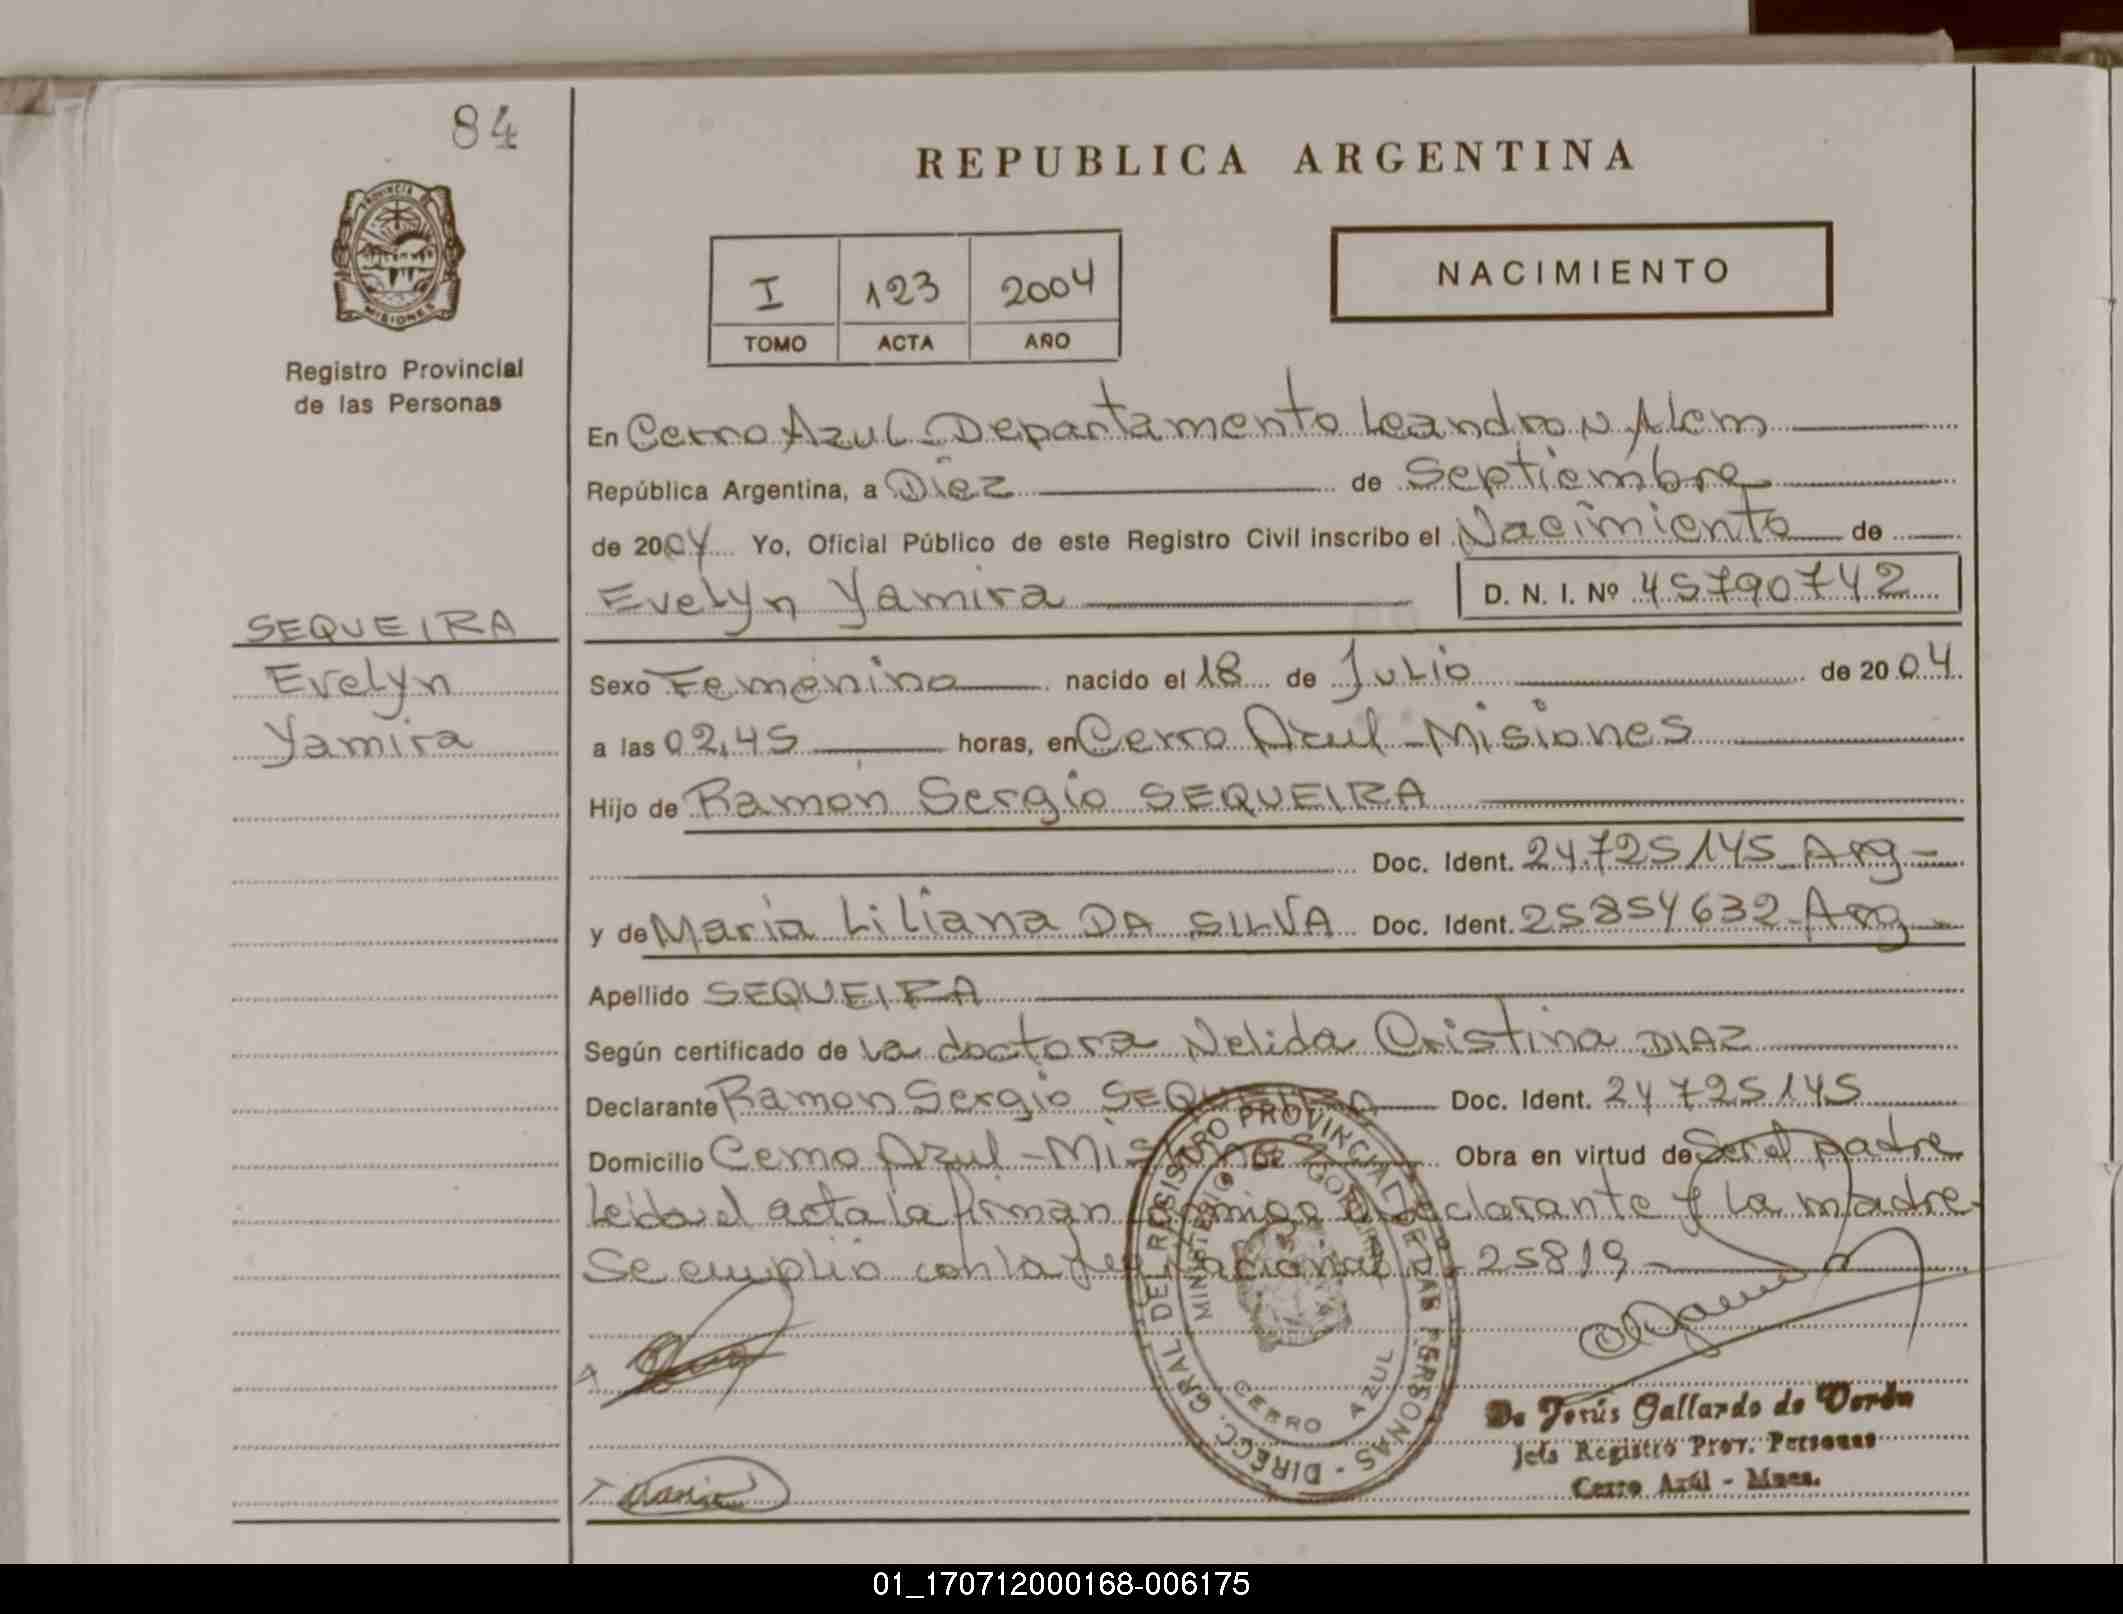 84
REPUBLICA ARGENTINA
PROVINCIA DE
MISIONES
Registro Provincial
de las Personas
I 123 2004
TOMO ACTA AÑO
NACIMIENTO
En Cerro Azul - Departamento Leandro N. Alem
República Argentina, a Diez de Septiembre
de 2004 Yo, Oficial Público de este Registro Civil inscribo el Nacimiento de
Evelyn Yamira D. N. I. Nº 45790742
SEQUEIRA
Evelyn
Yamira
Sexo Femenino nacido el 18 de Julio de 2004
a las 02,45 horas, en Cerro Azul - Misiones
Hijo de Ramón Sergio SEQUEIRA
Doc. Ident. 24.725145 Arg -
y de María Liliana DA SILVA Doc. Ident. 25854632 - Arg -
Apellido SEQUEIRA
Según certificado de la doctora Nelida Cristina DIAZ
Declarante Ramon Sergio SEQUEIRA Doc. Ident. 24725145
Domicilio Cerro Azul - Misiones Obra en virtud de Ser el padre
Leida el acta la firman conmigo el declarante y la madre
Se cumplio con la ley nacional 25819
DIRECC. GRAL. DEL REGISTRO PROVINCIAL DE LAS PERSONAS
MINISTERIO DE GOBIERNO
CERRO AZUL
De Jesús Gallardo de Verón
Jefa Registro Prov. Personas
Cerro Azúl - Mnes.
01_170712000168-006175